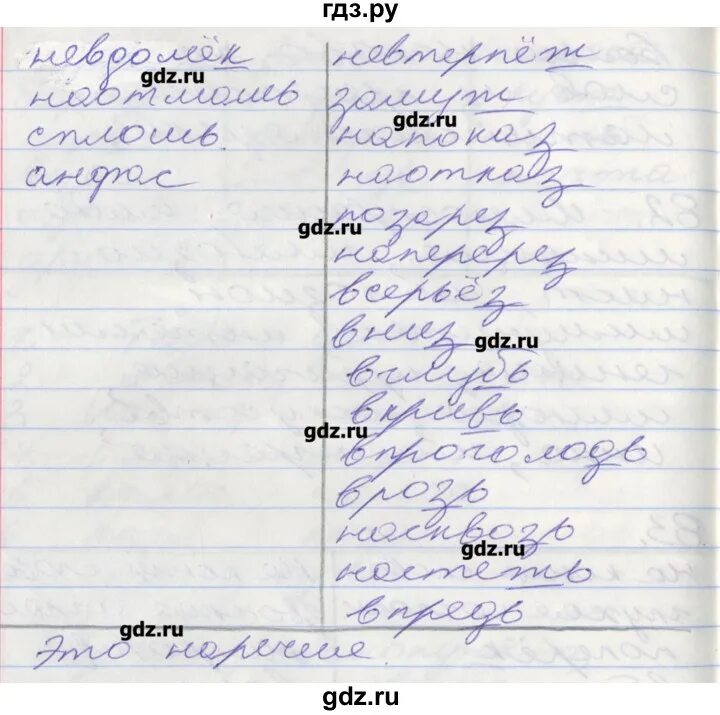 гдз.ру
невдомёк невтерпёж
gdz.ru
наотмашь замуж
gdz.ru
сплошь напоказ
анфас наотказ
позарез
gdz.ru
наперерез
всерьёз
вниз
gdz.ru
вглубь
вкривь
gdz.ru
впроголодь
врозь
насквозь
gdz.ru
настежь
впредь
gdz.ru
Это наречие
gdz.ru